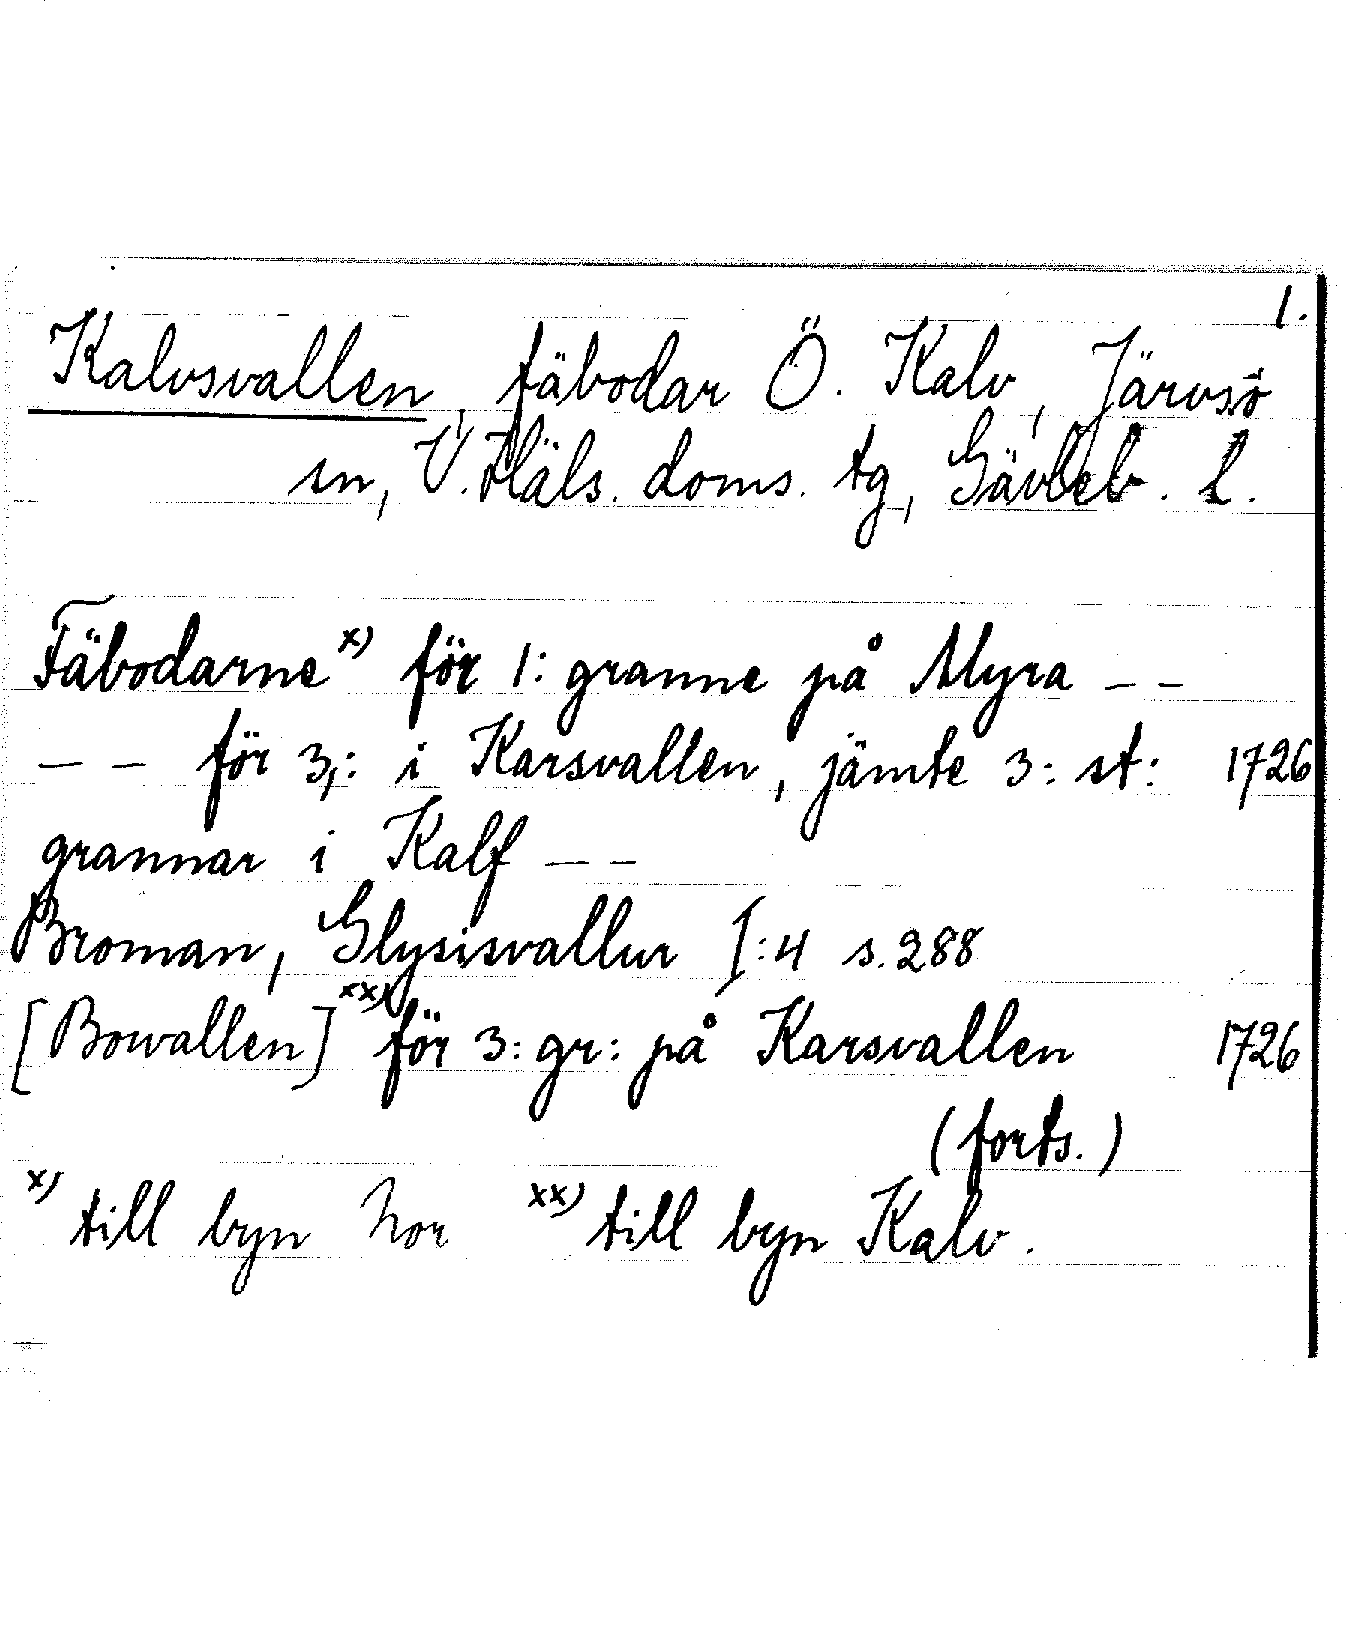 1.
Kalvsvallen, fäbodar Ö. Kalv, Järvsö
sn, V. Häls. doms. tg, Gävleb. l.
Fäbodarne x) för 1: granne på Myra – –
– – för 3,: i Karsvallen, jämte 3: st: 1726
grannar i Kalf – –
Broman, Glysisvallur I:4 s. 288
[Bowallen] xx) för 3: gr: på Karsvallen 1726
(forts.)
x) till byn Nor xx) till byn Kalv.